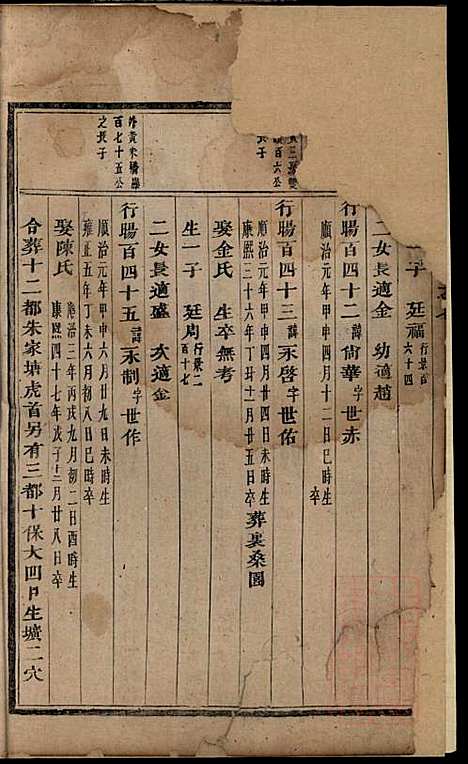 一子 廷福 行景百六十四
二女長適金 幼適趙
行賜百四十二諱尙華字世赤
順治元年甲申四月十二日巳時生
卒
行賜百四十三諱永啓字世佑
順治元年甲申四月廿四日未時生
康熙三十六年丁丑十一月廿五日卒 葬裏桑園
娶金氏 生卒無考
生一子 廷周 行景二百十七
二女長適盛 次適金
行賜百四十五諱永制字世作
順治元年甲申六月廿九日未時生
雍正五年丁未六月初二日巳時卒
娶陳氏 順治三年丙戌九月初二日酉時生
康熙四十七年戊子十二月廿八日卒
合葬十二都朱家塘虎首另有三都十保大四日生壙二穴
百六公
長子
外黃朱橋
百七十五公
之長子